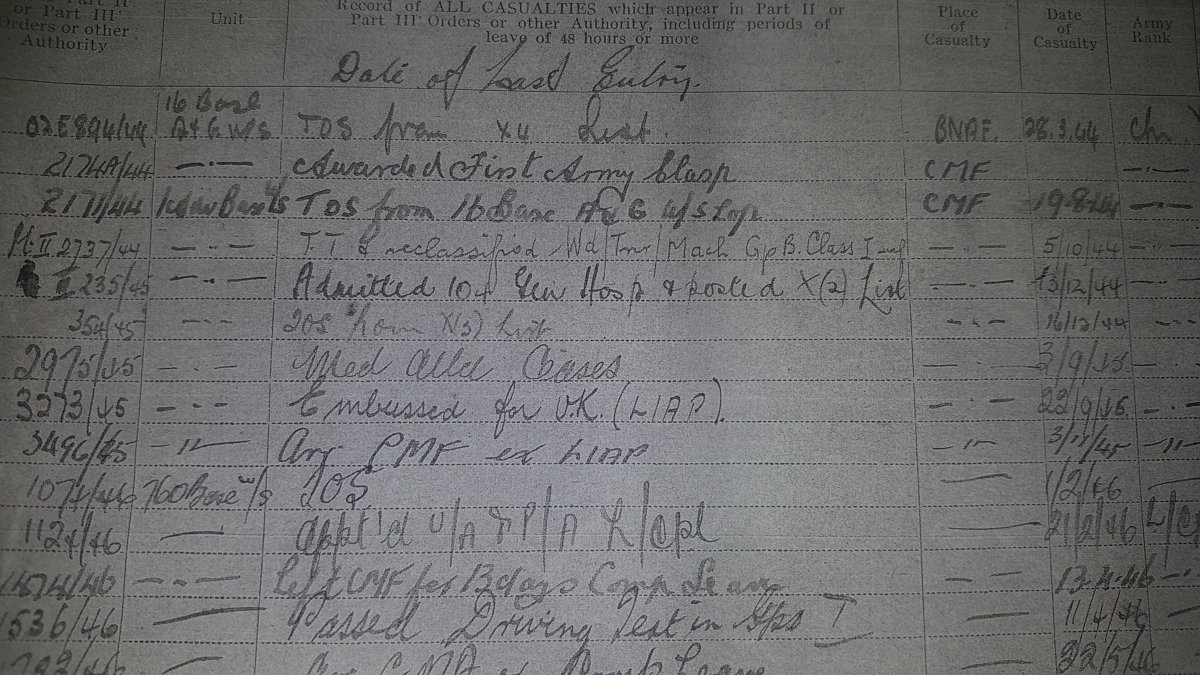 Part II
or Part III
Orders or other
Authority
Unit
Record of ALL CASUALTIES which appear in Part II or
Part III Orders or other Authority, including periods of
leave of 48 hours or more
Place
of
Casualty
Date
of
Casualty
Army
Rank
Date of Last Entry.
16 Base
TOS from X4 List. BNAF. 28.3.44
2174A/44 —·— Awarded First Army Clasp CMF —·—
2171/44 TOS from 16 Base CMF 19.8.44 —·—
Pt. II 2737/44 —·— T.T & reclassified Gp B. Class I —·— 5/10/44 —·—
II 235/45 —·— Admitted 104 Gen Hosp & posted X(2) List —·— 13/12/44 —·—
354/45 —·— TOS from List —·— 16/12/44 —·—
2975/45 —·— Med Cases — 3/9/45 —
3273/45 —·— Embussed for U.K. (LIAP). —·— 22/9/45 —·—
3496/45 —"— Arr CMF ex LIAP —"— 3/11/45 —"—
1074/46 760 Base w/s TOS — 1/2/46 —
1124/46 — appt'd U/A P/A L/Cpl — 21/2/46
—·— Left CMF for 13 days Leave — — 13.4.46 —·—
1536/46 — Passed Driving Test in Gps I — 11/4/46 —
— Leave — 22/5/46